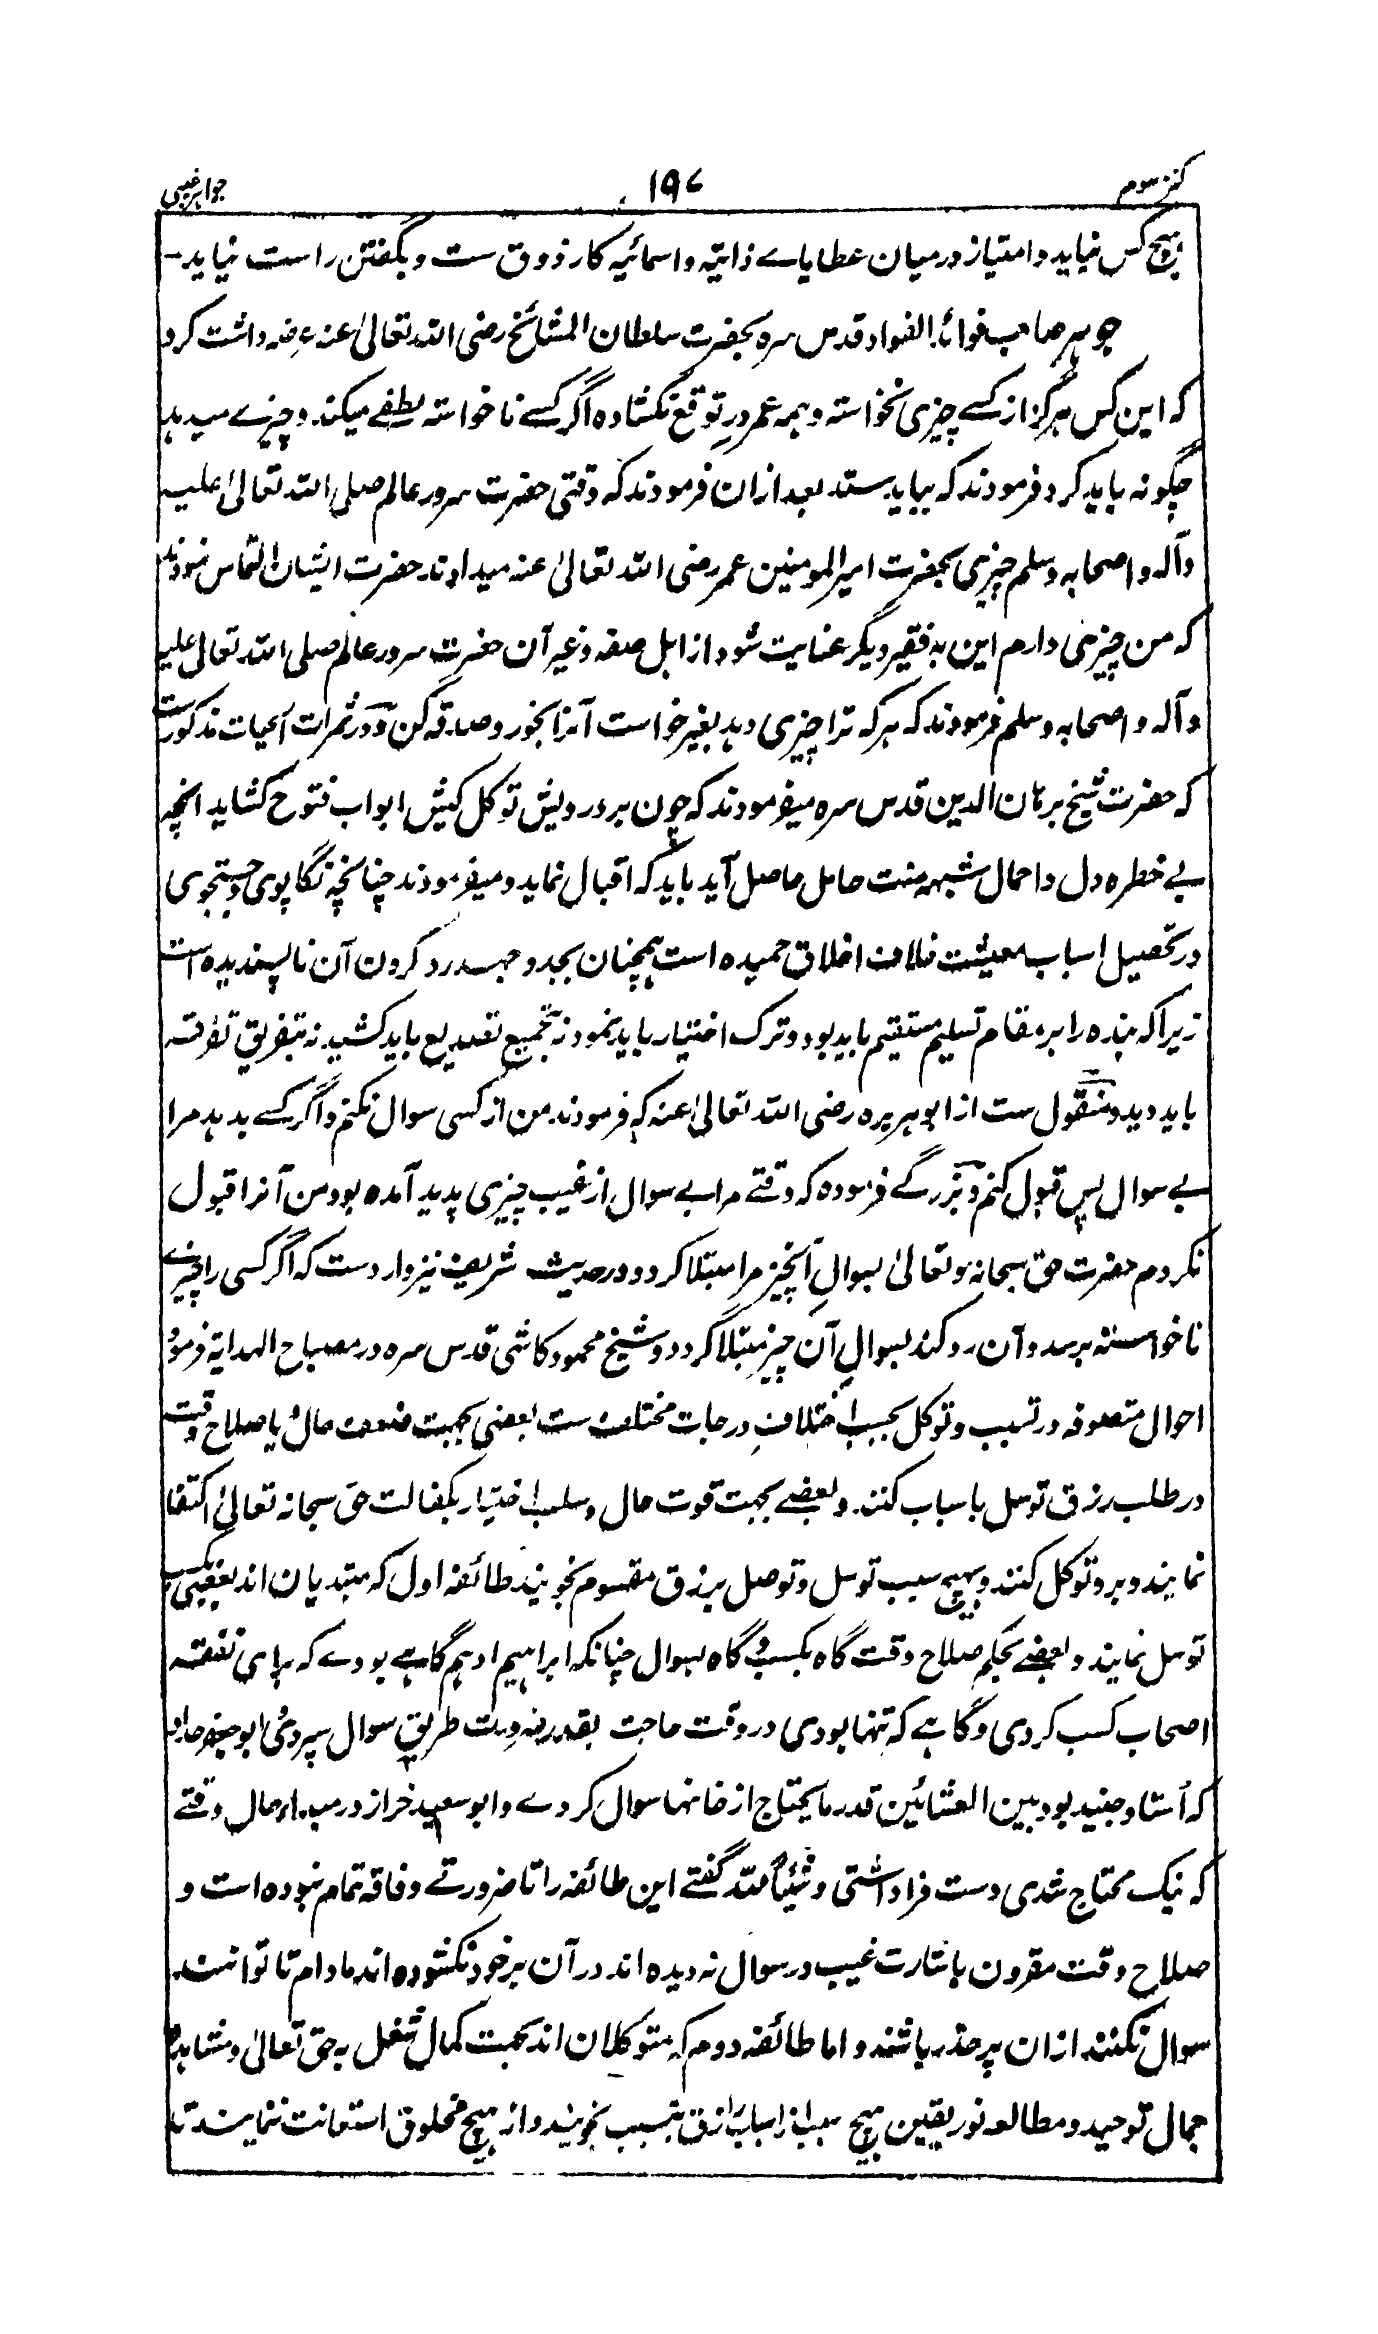 کنز سوم ۱۹۷ جواہر غیبی
ہیچ کس نیاید و امتیاز درمیان عطایاے ذاتیہ و اسمائیہ کار ذوق ست و بگفتن راست نیاید۔
جوہر صاحب فوائد الفواد قدس سرہ بحضرت سلطان المشائخ رضی اللہ تعالیٰ عنہ عرضہ داشت کرد
کہ این کس ہرگز از کسے چیزی نخواستہ و ہمہ عمر درِ توقع نکشادہ اگر کسے ناخواستہ لطفے میکند و چیزے میدہد
چگونہ باید کرد فرمودند کہ بباید ستد بعد ازان فرمودند کہ وقتی حضرت سرور عالم صلی اللہ تعالیٰ علیہ
و آلہ و اصحابہ و سلم چیزی بحضرت امیر المومنین عمر رضی اللہ تعالیٰ عنہ میدادند حضرت ایشان التماس نمودند
کہ من چیزی دارم این بہ فقیر دیگر عنایت شود از اہل صفہ و غیر آن حضرت سرور عالم صلی اللہ تعالیٰ علیہ
و آلہ و اصحابہ و سلم فرمودند کہ ہر کہ ترا چیزی دہد بغیر خواست آنرا بخور و صدقہ کن و در ثمرات الحیات مذکورست
کہ حضرت شیخ برہان الدین قدس سرہ میفرمودند کہ چون بر درویش توکل کیش ابواب فتوح کشاید انچہ
بے خطرہ دل و احمال شبہہ منت حامل حاصل آید باید کہ اقبال نماید و میفرمودند چنانچہ تگاپوی و جستجوی
در تحصیل اسباب معیشت خلاف اخلاق حمیدہ است ہمچنان بجد و جہد رد کردن آن ناپسندیدہ است
زیرا کہ بندہ را بر مقام تسلیم مستقیم باید بود و ترک اختیار باید نمود نہ تجمیع تصدیع باید کشید نہ بتفریق تفرقہ
باید دید و منقول ست از ابو ہریرہ رضی اللہ تعالیٰ عنہ کہ فرمودند من از کسی سوال نکنم و اگر کسے بدہد مرا
بے سوال پس قبول کنم و بزرگے فرمودہ کہ وقتے مرا بے سوال از غیب چیزی پدید آمدہ بود من آنرا قبول
نکردم حضرت حق سبحانہ و تعالیٰ بسوالِ آنچیز مرا مبتلا کرد و در حدیث شریف نیز وارد ست کہ اگر کسی را چیزے
ناخواستہ برسد و آن رد کند بسوالِ آن چیز مبتلا گردد و شیخ محمود کاشی قدس سرہ در مصباح الہدایۃ فرمود
احوال متصوفہ در تسبب و توکل بحسب اختلافِ درجات مختلف ست بعضی بجہت ضعف حال یا صلاح وقت
در طلب رزق توسل باسباب کنند و بعضے بجہت قوت حال و سلب اختیار بکفالت حق سبحانہ تعالیٰ اکتفا
نمایند و برو توکل کنند و بہیچ سبب توسل و توصل برزق مقسوم نجویند طائفہ اول کہ مبتدیان اند بعضی بکسب
توسل نمایند و بعضے بحکم صلاح وقت گاہ بکسب و گاہ بسوال چنانکہ ابراہیم ادہم گاہے بودے کہ برای نفقہ
اصحاب کسب کردی و گاہے کہ تنہا بودی در وقت حاجت بقدر ضرورت طریق سوال سپردی ابو جعفر حداد
کہ اُستاد جنید بود بین العشائین قدر ما یحتاج از خانہا سوال کردے و ابو سعید خراز در مبداء حال وقتے
کہ نیک محتاج شدی دست فرا داشتی و شیئاً للہ گفتے این طائفہ را تا ضرورتے و فاقہ تمام نبودہ است و
صلاح وقت مقرون باشارت غیب در سوال نہ دیدہ اند در آن بر خود نکشودہ اند مادام تا توانند
سوال نکنند ازان پر حذر باشند و اما طائفہ دوم کہ متوکلان اند بجہت کمال شغل بہ حق تعالیٰ و مشاہدہ
جمال توحید و مطالعہ نور یقین ہیچ سبب از اسباب رزق بتسبب نجویند و از ہیچ مخلوق استعانت ننمایند تا